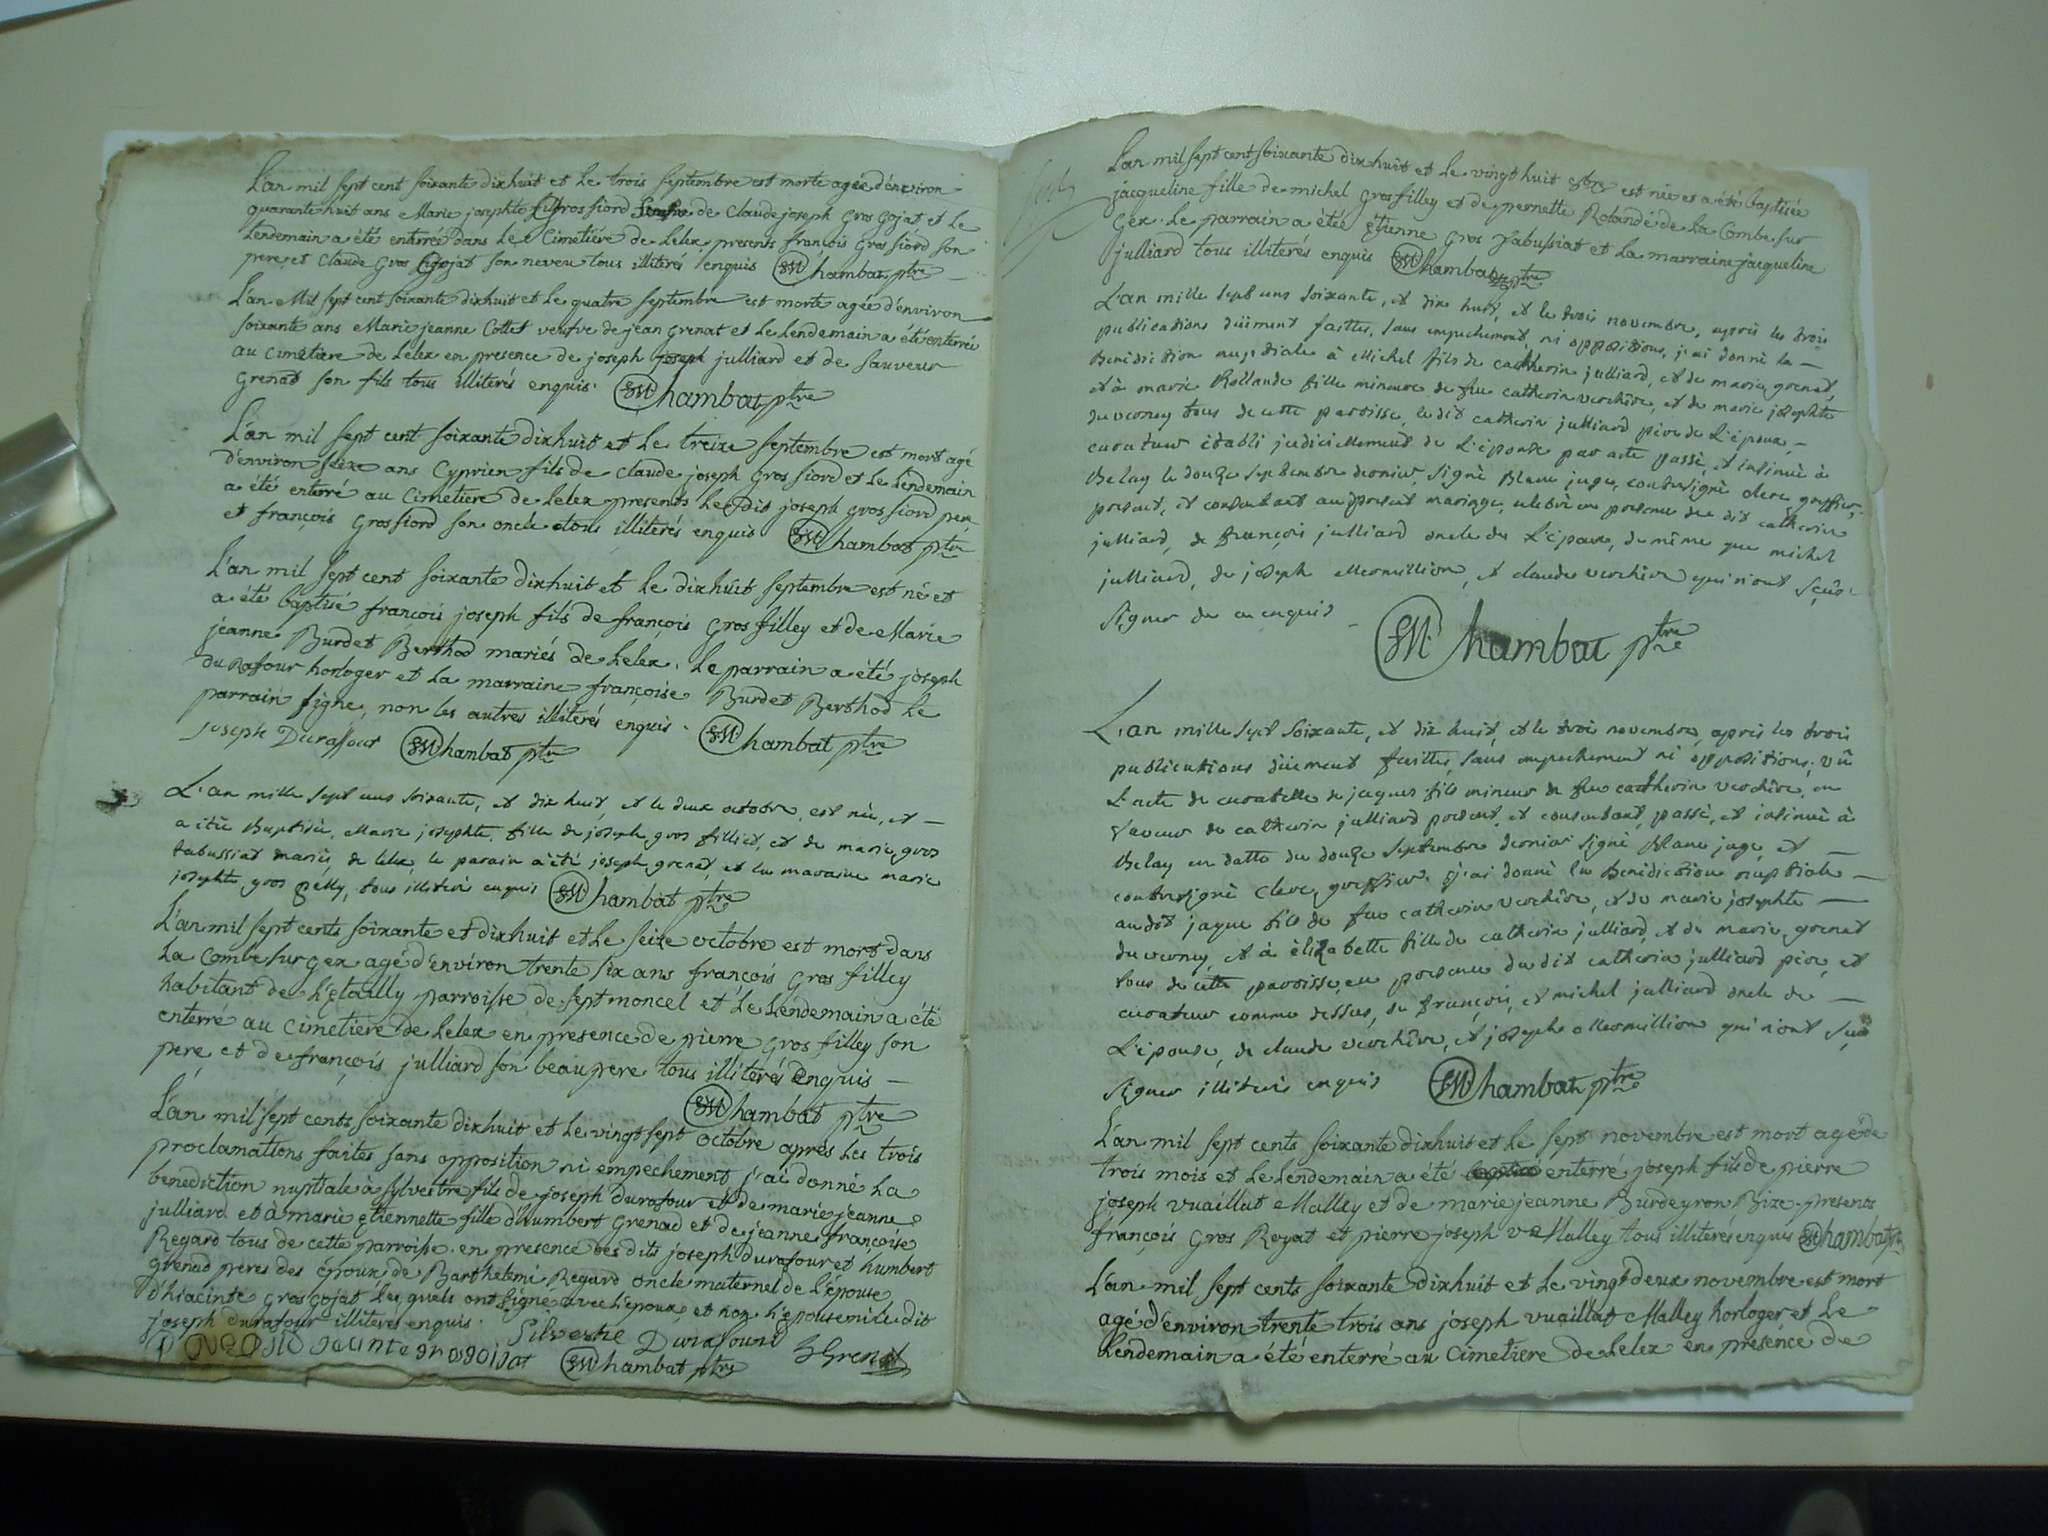 L'an mil sept cent soixante dixhuit et le trois septembre est morte agée d'environ
quarante huit ans Marie josephte gros fiord de Claude joseph gros gojat et le
lendemain a été enterrée dans le Cimetière de Lelex presents françois gros fiord son
pere et Claude gros gojat son neveu tous illiterés enquis Chambat ptre
L'an Mil sept cent soixante dixhuit et le quatre septembre est morte agée d'environ
soixante ans Marie jeanne Cottet veufve de jean grenat et le lendemain a été enterrée
au cimetiere de Lelex en presence de joseph joseph julliard et de sauveur
grenat son fils tous illiterés enquis. Chambat ptre
L'an mil sept cent soixante dixhuit et le treize septembre est mort agé
d'environ seize ans Cyprien fils de Claude joseph gros fiord et le lendemain
a été enterré au Cimetiere de Lelex presents le dit joseph gros fiord pere
et françois gros fiord son oncle tous illiterés enquis Chambat ptre
L'an mil sept cent soixante dixhuit et le dixhuit septembre est né et
a été baptisé françois joseph fils de françois gros filley et de Marie
jeanne Burdet Berthod mariés de Lelex. le parrain a été joseph
Durafour horloger et la marraine françoise Burdet Berthod le
parrain signe, non les autres illiterés enquis. Chambat ptre
joseph Duraffour Chambat ptre
L'an mille sept cens soixante, et dix huit, et le deux octobre, est née, et
a été Baptisée, Marie josephte, fille de joseph gros filliet, et de marie gros
tabussiat mariés de lelex, le parain a été joseph grenat, et la maraine marie
josephte gros tous illiteré enquis Chambat ptre
L'an mil sept cents soixante et dixhuit et le seize octobre est mort dans
La Combe sur gex agé d'environ trente six ans françois gros filley
habitant de parroisse de septmoncel et le lendemain a été
enterré au cimetiere de Lelex en presence de pierre gros filley son
pere et de françois julliard son beaupere tous illiterés enquis
Chambat ptre
L'an mil sept cents soixante dixhuit et le vingt sept octobre aprés les trois
proclamations faites sans opposition ni empechement j'ai donné la
benediction nuptiale à sylvestre fils de joseph durafour et de marie jeanne
julliard et à marie etiennette fille d'humbert grenad et de jeanne françoise
Regard tous de cette parroisse. en presence des dits joseph durafour et humbert
grenad peres des époux de Barthelemi Regard oncle maternel de l'épouse
d'hiacinte gros gojat les quels ont signé avec l'epoux et non l'epouse ni le dit
joseph durafour illiterés enquis. Silvestre Durafourd
gros gojat Chambat ptre Grenat
L'an mil sept cent soixante dix huit et le vingt huit est née et a été baptisée
jacqueline fille de michel gros filley et de pernette Rolandé de la Combe sur
gex. le parrain a été étienne gros tabussiat et la marraine jacqueline
julliard tous illiterés enquis Chambat ptre
L'an mille sept cens soixante, et dix huit, et le trois novembre, après les trois
publications düement faittes, sans empechement, ni oppositions, j'ai donné la
Benediction nuptiale à Michel fils de catherin julliard, et de marie grenat,
et à marie Rollande fille mineure de feu catherin verchère, et de marie josephte
duverney tous de cette paroisse, ledit catherin julliard père de L'époux,
curateur etabli judiciellement de L'épouse par acte passé, et insinué à
Belay le douze septembre dernier, signé Blanc juge, contresigné clerc greffier,
present, et consentant au present mariage, celebré en presence du dit catherin
julliard, de françois julliard oncle de L'époux, de même que michel
julliard, de joseph Mermillion, et claude verchère qui n'ont sçeu
signer de ce enquis
Chambat ptre
L'an mille sept soixante, et dix huit, et le trois novembre, après les trois
publications düement faittes, sans empechement ni oppositions, vû
L'acte de curatelle de jaques fils mineur de feu catherin verchère, en
faveur de catherin julliard present, et consentant, passé, et insinué à
Belay en datte du douze septembre dernier signé Blanc juge, et
contresigné Clerc greffier. j'ai donné la Benediction nuptiale
audit jaque fils de feu catherin verchère, et de marie josephte
duverney, et à élizabette fille de catherin julliard, et de marie grenat
tous de cette paroisse, en presence du dit catherin julliard père, et
curateur comme dessus, de françois, et michel julliard oncle de
L'épouse, de claude verchère, et joseph Mermillion qui n'ont sçeu
signer illiterés enquis Chambat ptre
L'an mil sept cents soixante dixhuit et le sept novembre est mort agé de
trois mois et le lendemain a été enterré joseph fils de pierre
joseph vuaillat Malley et de marie jeanne Burdeyron Bize. presents
françois gros Royat et pierre joseph v Malley tous illiterés enquis Chambat ptre
L'an mil sept cents soixante dixhuit et le vingt deux novembre est mort
agé d'environ trente trois ans joseph vuaillat Malley horloger et le
lendemain a été enterré au Cimetiere de Lelex en presence de